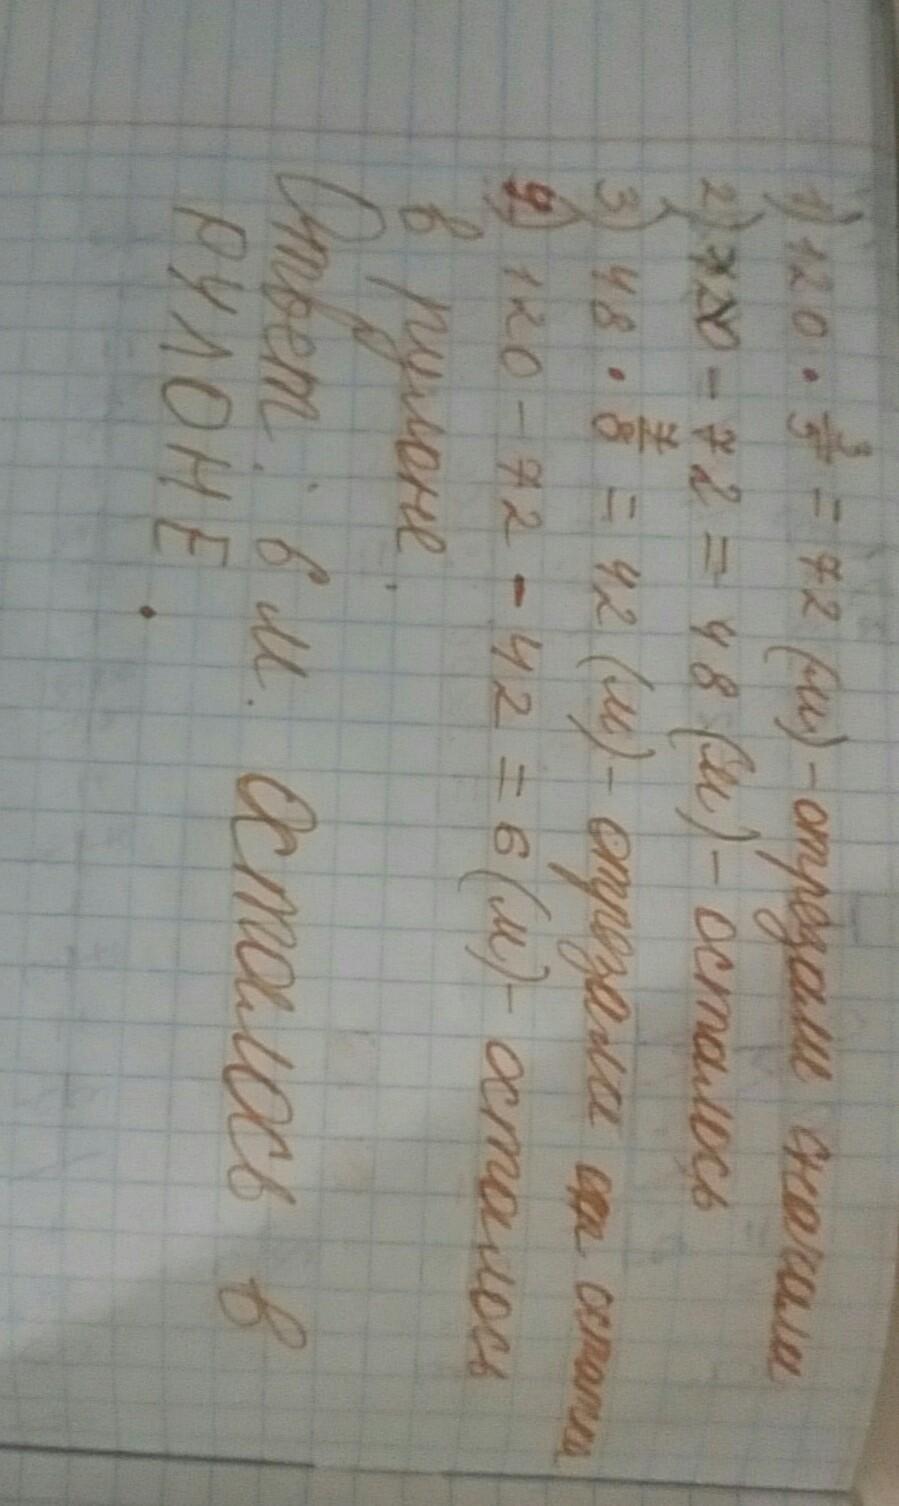 1) 120 · 3/5 = 72 (м) - отрезали сначала
2) 120 - 72 = 48 (м) - осталось
3) 48 · 7/8 = 42 (м) - отрезали
4) 120 - 72 - 42 = 6 (м) - осталось
в рулоне.
Ответ: 6 м. осталось в
РУЛОНЕ.